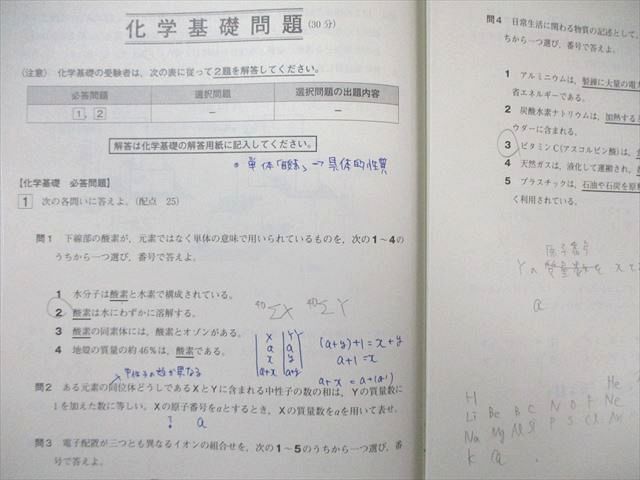 化学基礎問題 (30分)
(注意) 化学基礎の受験者は、次の表に従って2題を解答してください。
必答問題 選択問題 選択問題の出題内容
1, 2 － －
解答は化学基礎の解答用紙に記入してください。
単体「酸素」→具体的性質
【化学基礎 必答問題】
1 次の各問いに答えよ。(配点 25)
問1 下線部の酸素が、元素ではなく単体の意味で用いられているものを、次の1～4の
うちから一つ選び、番号で答えよ。
1 水分子は酸素と水素で構成されている。
2 酸素は水にわずかに溶解する。
3 酸素の同素体には、酸素とオゾンがある。
4 地殻の質量の約46%は、酸素である。
X Y
a a
x y
a+x a+y
(a+y)+1=x+y
a+1=x
a+x=a+(a+1)
中性子の数が異なる
問2 ある元素の同位体どうしであるXとYに含まれる中性子の数の和は、Yの質量数に
1を加えた数に等しい。Xの原子番号をaとするとき、Xの質量数をaを用いて表せ。
a
問3 電子配置が三つとも異なるイオンの組合せを、次の1～5のうちから一つ選び、番
号で答えよ。
問4 日常生活に関わる物質の記述として、
ちから一つ選び、番号で答えよ。
1 アルミニウムは、製錬に大量の電力
省エネルギーである。
2 炭酸水素ナトリウムは、加熱すると
ウダーに含まれる。
3 ビタミンC(アスコルビン酸)は、
4 天然ガスは、液化して運搬され、
5 プラスチックは、石油や石炭を原料
く利用されている。
原子番号
Yの質量数を
a
H He
Li Be B C N O F Ne
Na Mg Al Si P S Cl Ar
K Ca